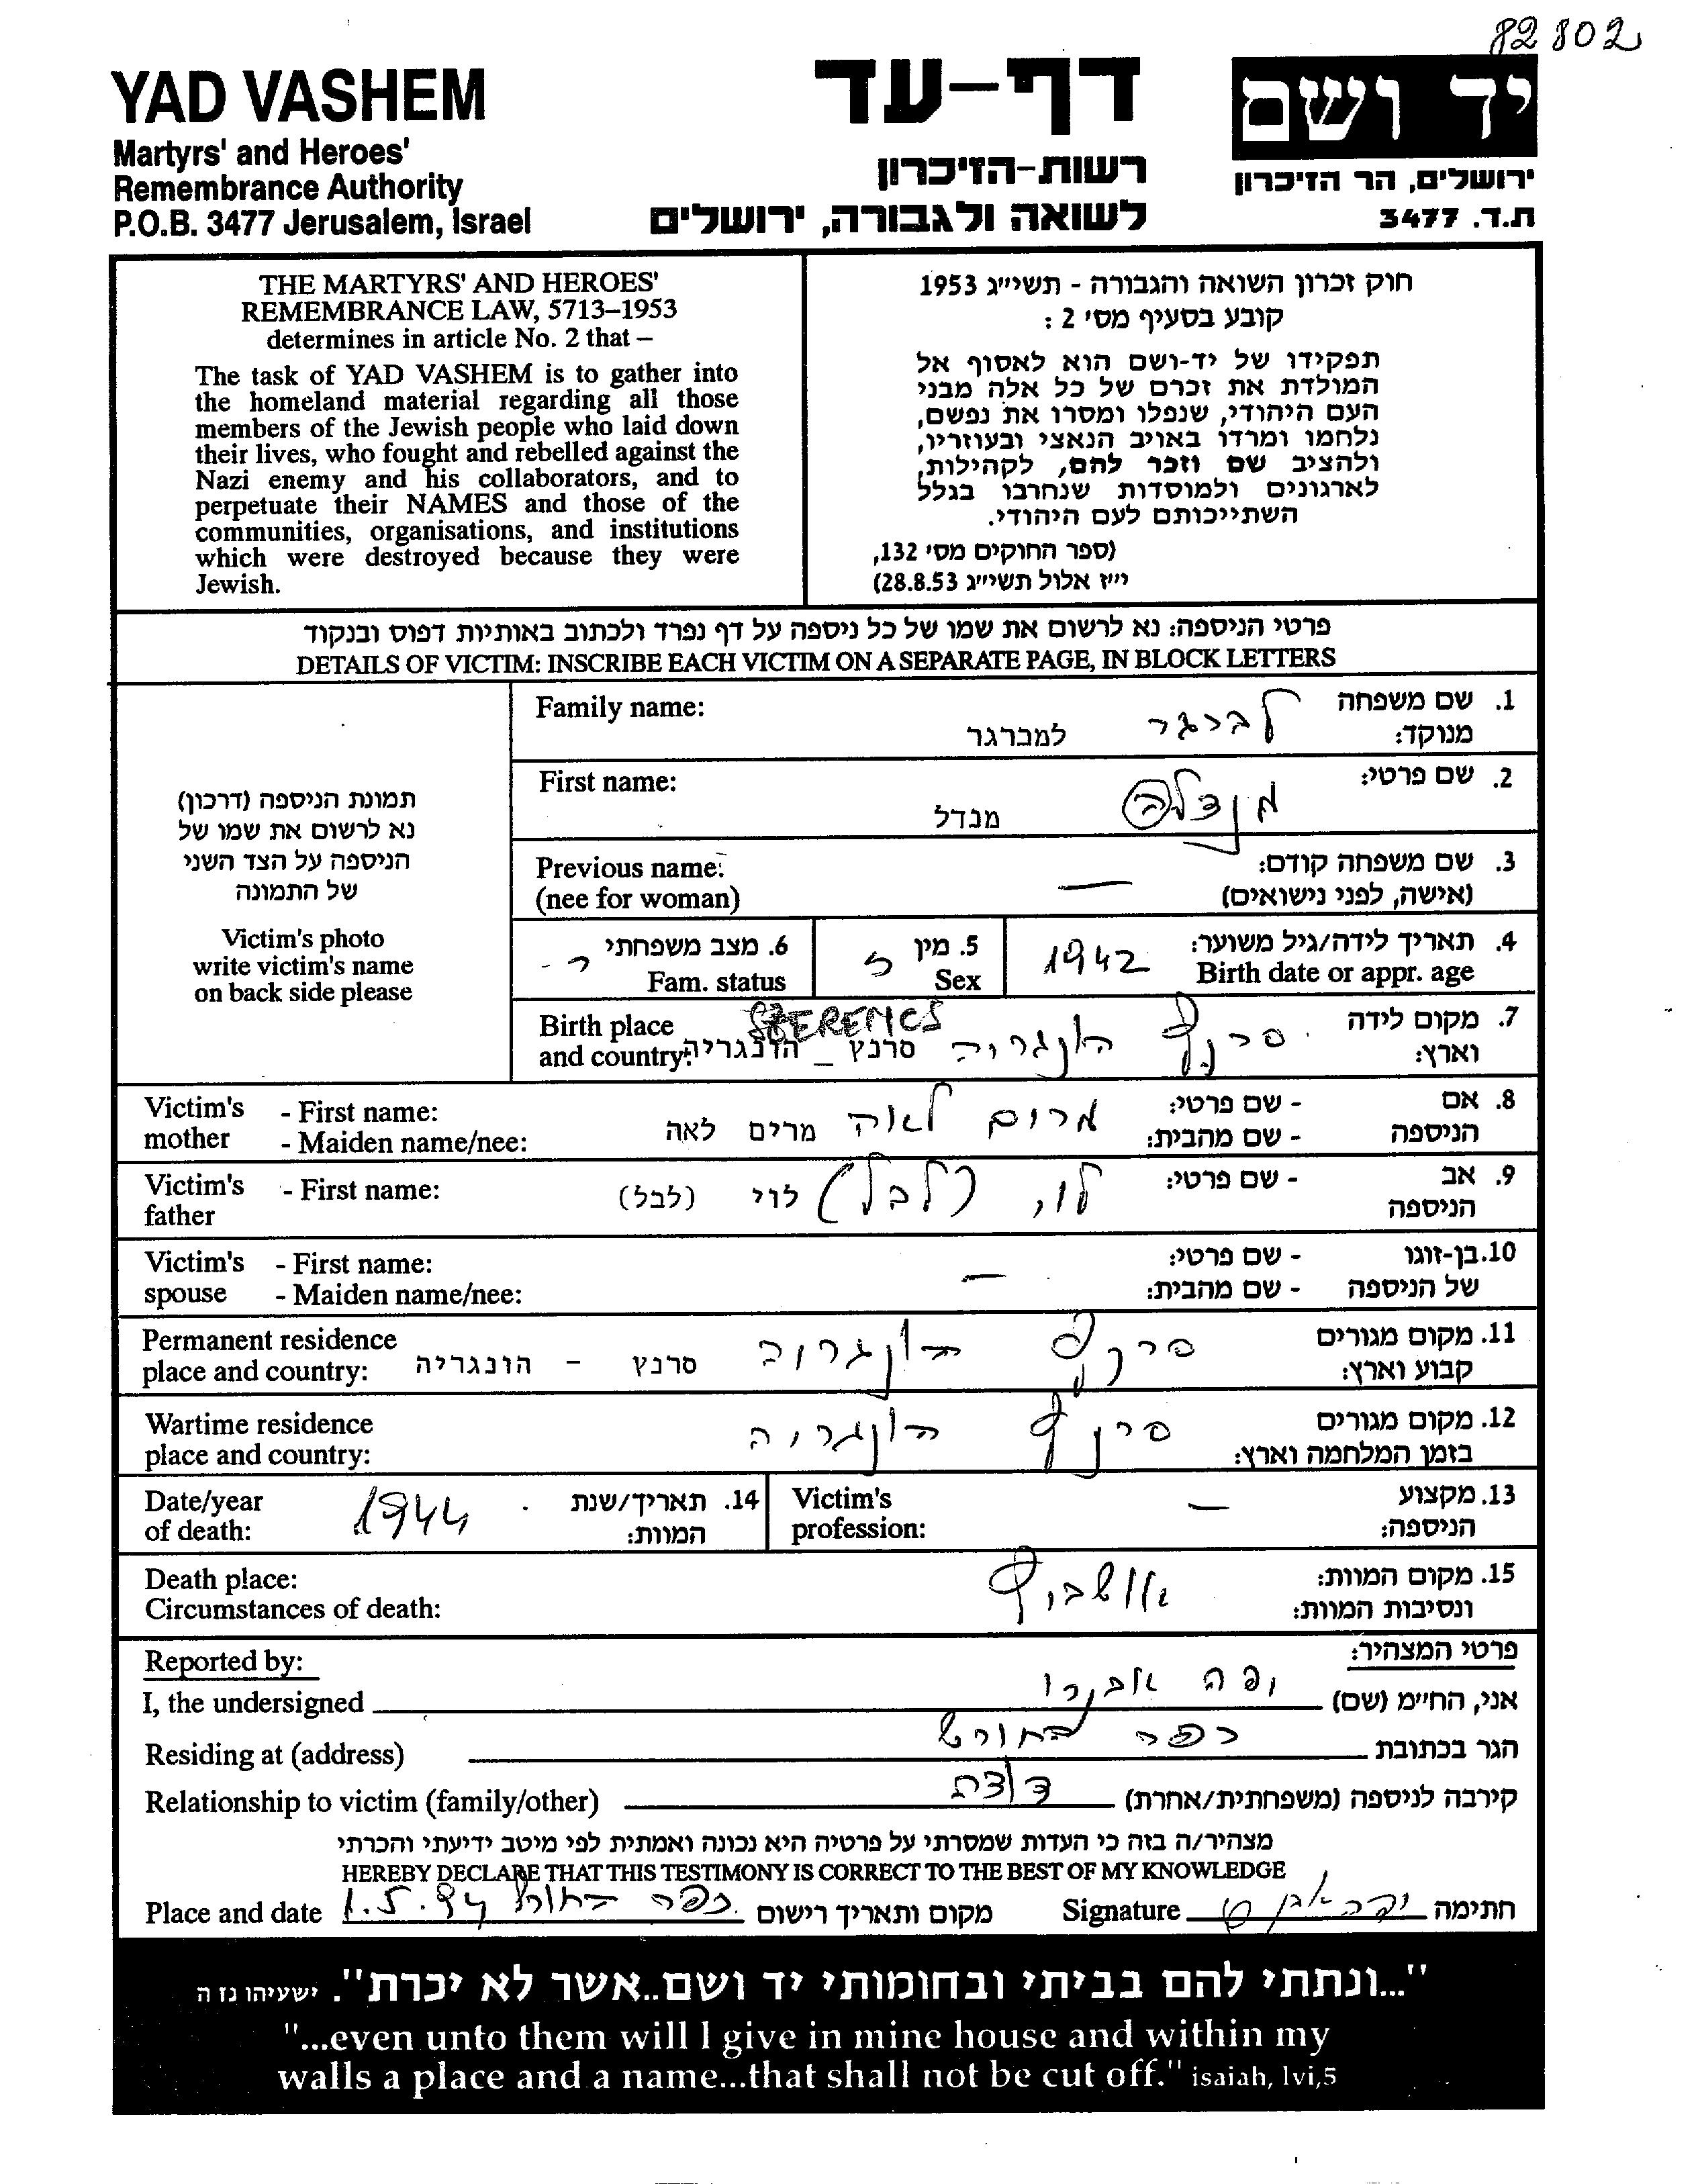 82802
YAD VASHEM
Martyrs' and Heroes'
Remembrance Authority
P.O.B. 3477 Jerusalem, Israel
דף-עד
רשות-הזיכרון
לשואה ולגבורה, ירושלים
יד ושם
ירושלים, הר הזיכרון
ת.ד. 3477
THE MARTYRS' AND HEROES'
REMEMBRANCE LAW, 5713–1953
determines in article No. 2 that –
The task of YAD VASHEM is to gather into
the homeland material regarding all those
members of the Jewish people who laid down
their lives, who fought and rebelled against the
Nazi enemy and his collaborators, and to
perpetuate their NAMES and those of the
communities, organisations, and institutions
which were destroyed because they were
Jewish.
חוק זכרון השואה והגבורה - תשי״ג 1953
קובע בסעיף מס׳ 2 :
תפקידו של יד-ושם הוא לאסוף אל
המולדת את זכרם של כל אלה מבני
העם היהודי, שנפלו ומסרו את נפשם,
נלחמו ומרדו באויב הנאצי ובעוזריו,
ולהציב שם וזכר להם, לקהילות,
לארגונים ולמוסדות שנחרבו בגלל
השתייכותם לעם היהודי.
(ספר החוקים מס׳ 132,
י״ז אלול תשי״ג 28.8.53)
פרטי הניספה: נא לרשום את שמו של כל ניספה על דף נפרד ולכתוב באותיות דפוס ובנקוד
DETAILS OF VICTIM: INSCRIBE EACH VICTIM ON A SEPARATE PAGE, IN BLOCK LETTERS
תמונת הניספה (דרכון)
נא לרשום את שמו של
הניספה על הצד השני
של התמונה
Victim's photo
write victim's name
on back side please
1. שם משפחה לברגר Family name:
מנוקד: למברגר
2. שם פרטי: מנדלה First name:
מנדל
3. שם משפחה קודם: — Previous name:
(אישה, לפני נישואים) (nee for woman)
4. תאריך לידה/גיל משוער: 1942 5. מין ז 6. מצב משפחתי ר -
Birth date or appr. age Sex Fam. status
7. מקום לידה סרנץ הונגריה SZERENCS Birth place
וארץ: סרנץ – הונגריה and country:
8. אם - שם פרטי: מרים לאה מרים לאה Victim's - First name:
הניספה - שם מהבית: mother - Maiden name/nee:
9. אב - שם פרטי: לוי (לבל) לוי (לבל) Victim's - First name:
הניספה father
10. בן-זוגו - שם פרטי: — Victim's - First name:
של הניספה - שם מהבית: spouse - Maiden name/nee:
11. מקום מגורים סרנץ הונגריה Permanent residence
קבוע וארץ: סרנץ - הונגריה place and country:
12. מקום מגורים סרנץ הונגריה Wartime residence
בזמן המלחמה וארץ: place and country:
13. מקצוע — Victim's 14. תאריך/שנת 1944 Date/year
הניספה: profession: המוות: of death:
15. מקום המוות: אושביץ Death place:
ונסיבות המוות: Circumstances of death:
פרטי המצהיר: Reported by:
אני, החי״מ (שם) יפה I, the undersigned
הגר בכתובת כפר החורש Residing at (address)
קירבה לניספה (משפחתית/אחרת) דודת Relationship to victim (family/other)
מצהיר/ה בזה כי העדות שמסרתי על פרטיה היא נכונה ואמתית לפי מיטב ידיעתי והכרתי
HEREBY DECLARE THAT THIS TESTIMONY IS CORRECT TO THE BEST OF MY KNOWLEDGE
Place and date 1.5.94 כפר החורש מקום ותאריך רישום Signature חתימה
"...ונתתי להם בביתי ובחומותי יד ושם..אשר לא יכרת". ישעיהו נז ה
"...even unto them will I give in mine house and within my
walls a place and a name...that shall not be cut off." isaiah, lvi,5